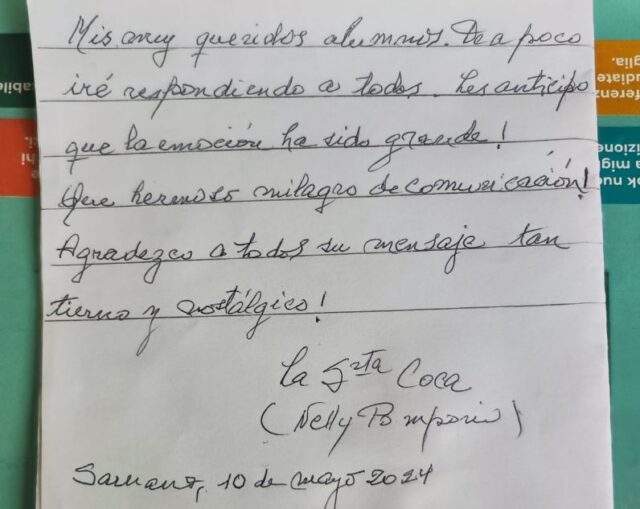 Mis muy queridos alumnos. De a poco
iré respondiendo a todos. Les anticipo
que la emoción ha sido grande!
Que hermoso milagro de comunicación!
Agradezco a todos su mensaje tan
tierno y nostálgico!
La Srta Coca
(Nelly Pomporio)
Sarnano, 10 de mayo 2024